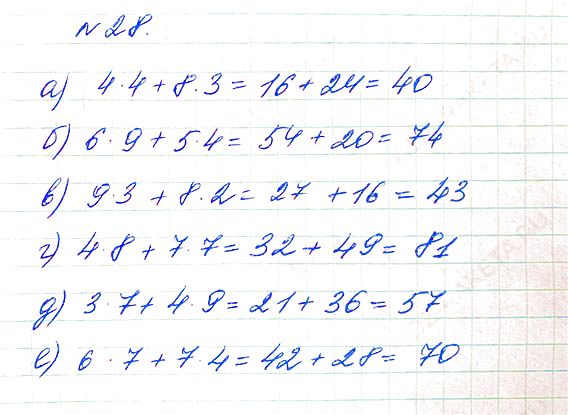 № 28.
а) 4·4 + 8·3 = 16 + 24 = 40
б) 6·9 + 5·4 = 54 + 20 = 74
в) 9·3 + 8·2 = 27 + 16 = 43
г) 4·8 + 7·7 = 32 + 49 = 81
д) 3·7 + 4·9 = 21 + 36 = 57
е) 6·7 + 7·4 = 42 + 28 = 70